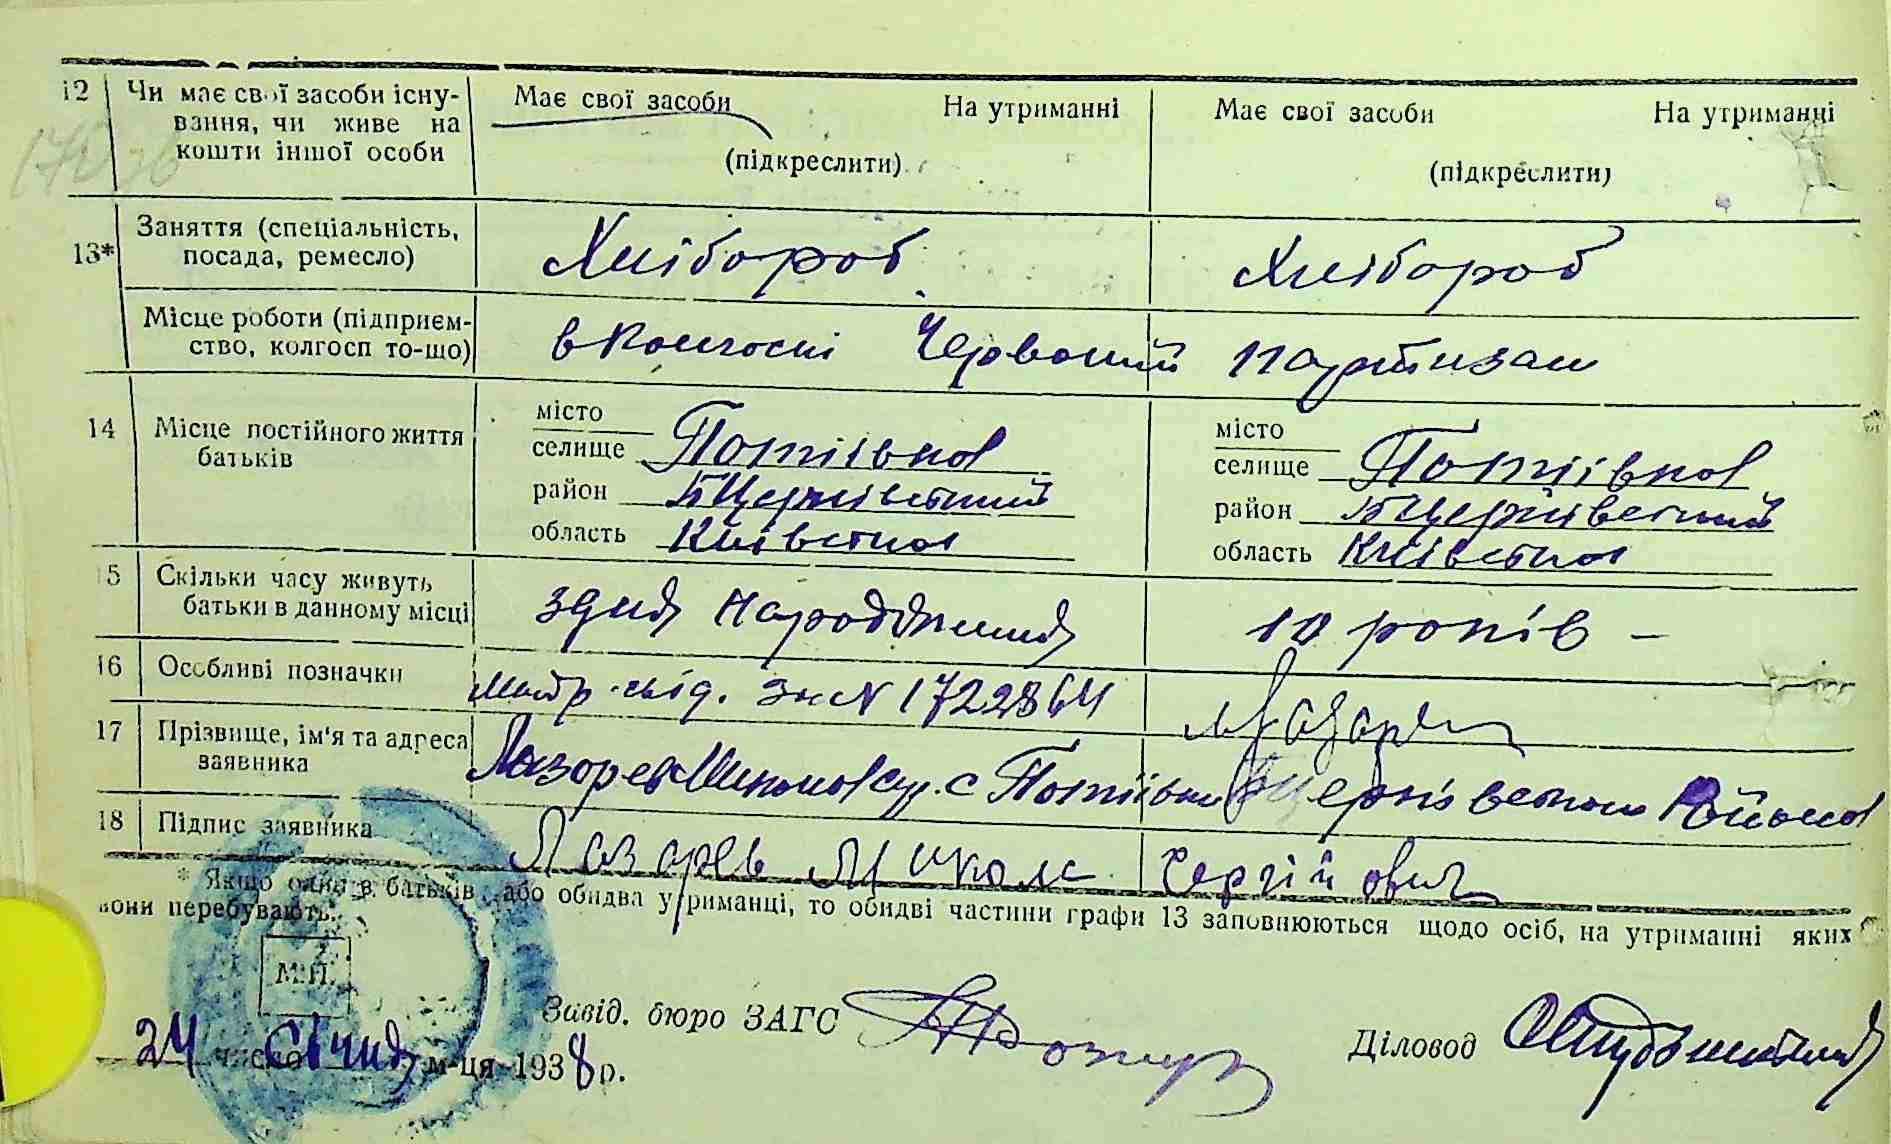 12 Чи має свої засоби існу- Має свої засоби На утриманні Має свої засоби На утриманці
вання, чи живе на
кошти іншої особи (підкреслити) (підкреслити)
13* Заняття (спеціальність, Хлібороб Хлібороб
посада, ремесло)
Місце роботи (підприєм- в колгоспі Червоний партизан
ство, колгосп то-що)
14 Місце постійного життя місто місто
батьків селище Потіївка селище Потіївка
район БЦерківський район БЦерківський
область Київська область Київська
15 Скільки часу живуть з дня народження 10 років –
батьки в данному місці
16 Особливі позначки свід. за N 1722864 Лазарев
17 Прізвище, ім'я та адреса Лазорев Микола с Потіївки БЦерківського Района
заявника
18 Підпис заявника Лазарев Микола Сергійович
* Якщо один з батьків, або обидва утриманці, то обидві частини графи 13 заповнюються щодо осіб, на утриманні яких
вони перебувають.
М.П.
Завід. бюро ЗАГС
Діловод
24 число січня м-ця 1938 р.